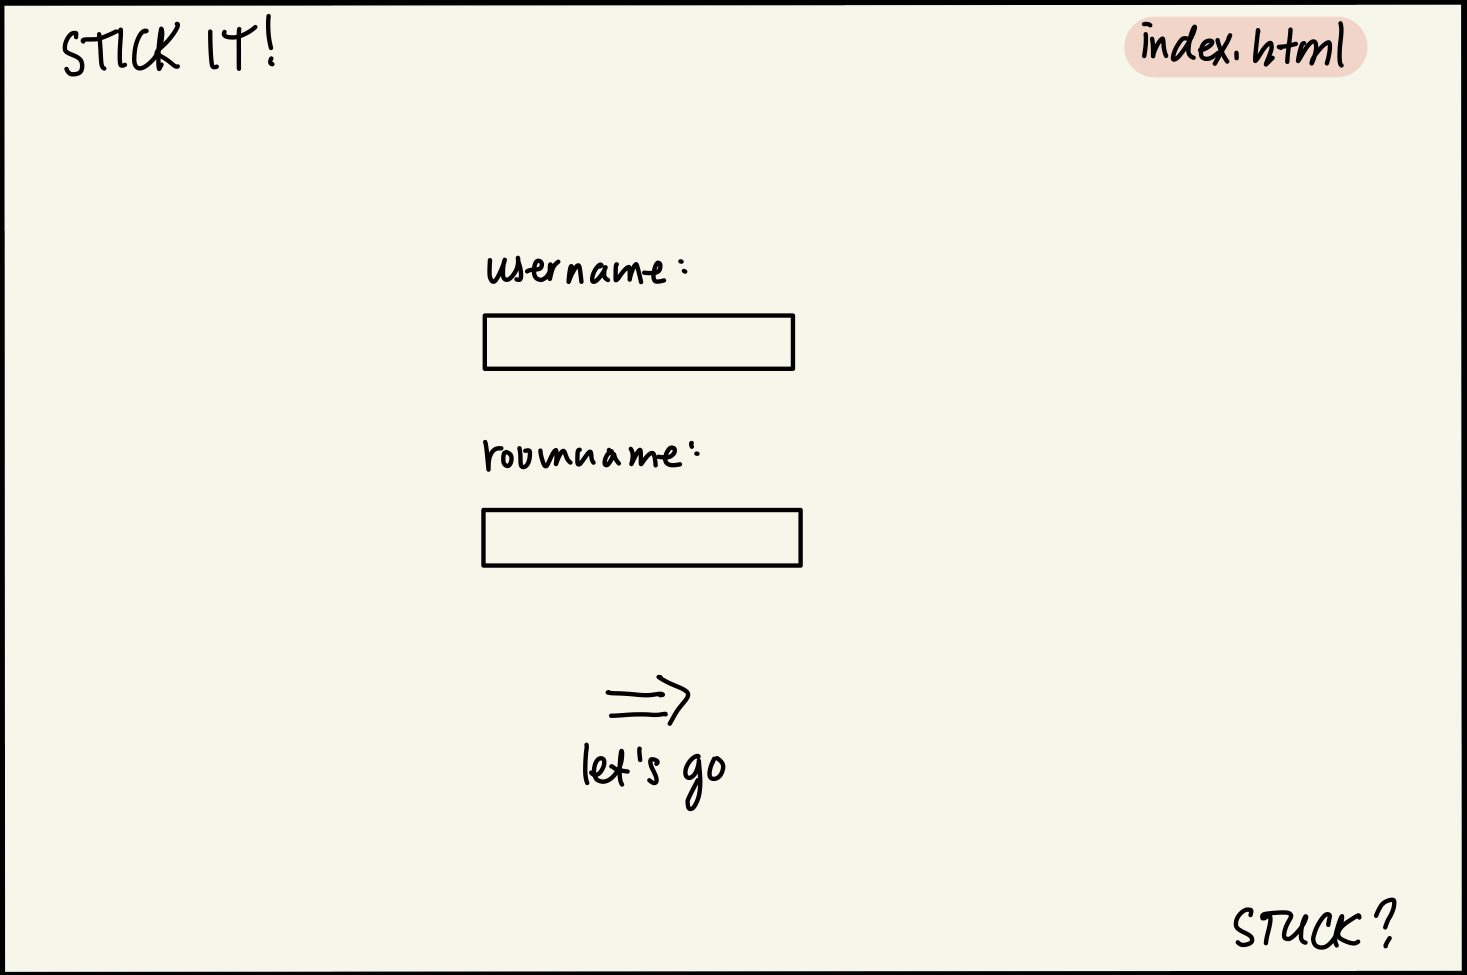 STICK IT!
index.html
username:
roomname:
let's go
STUCK?